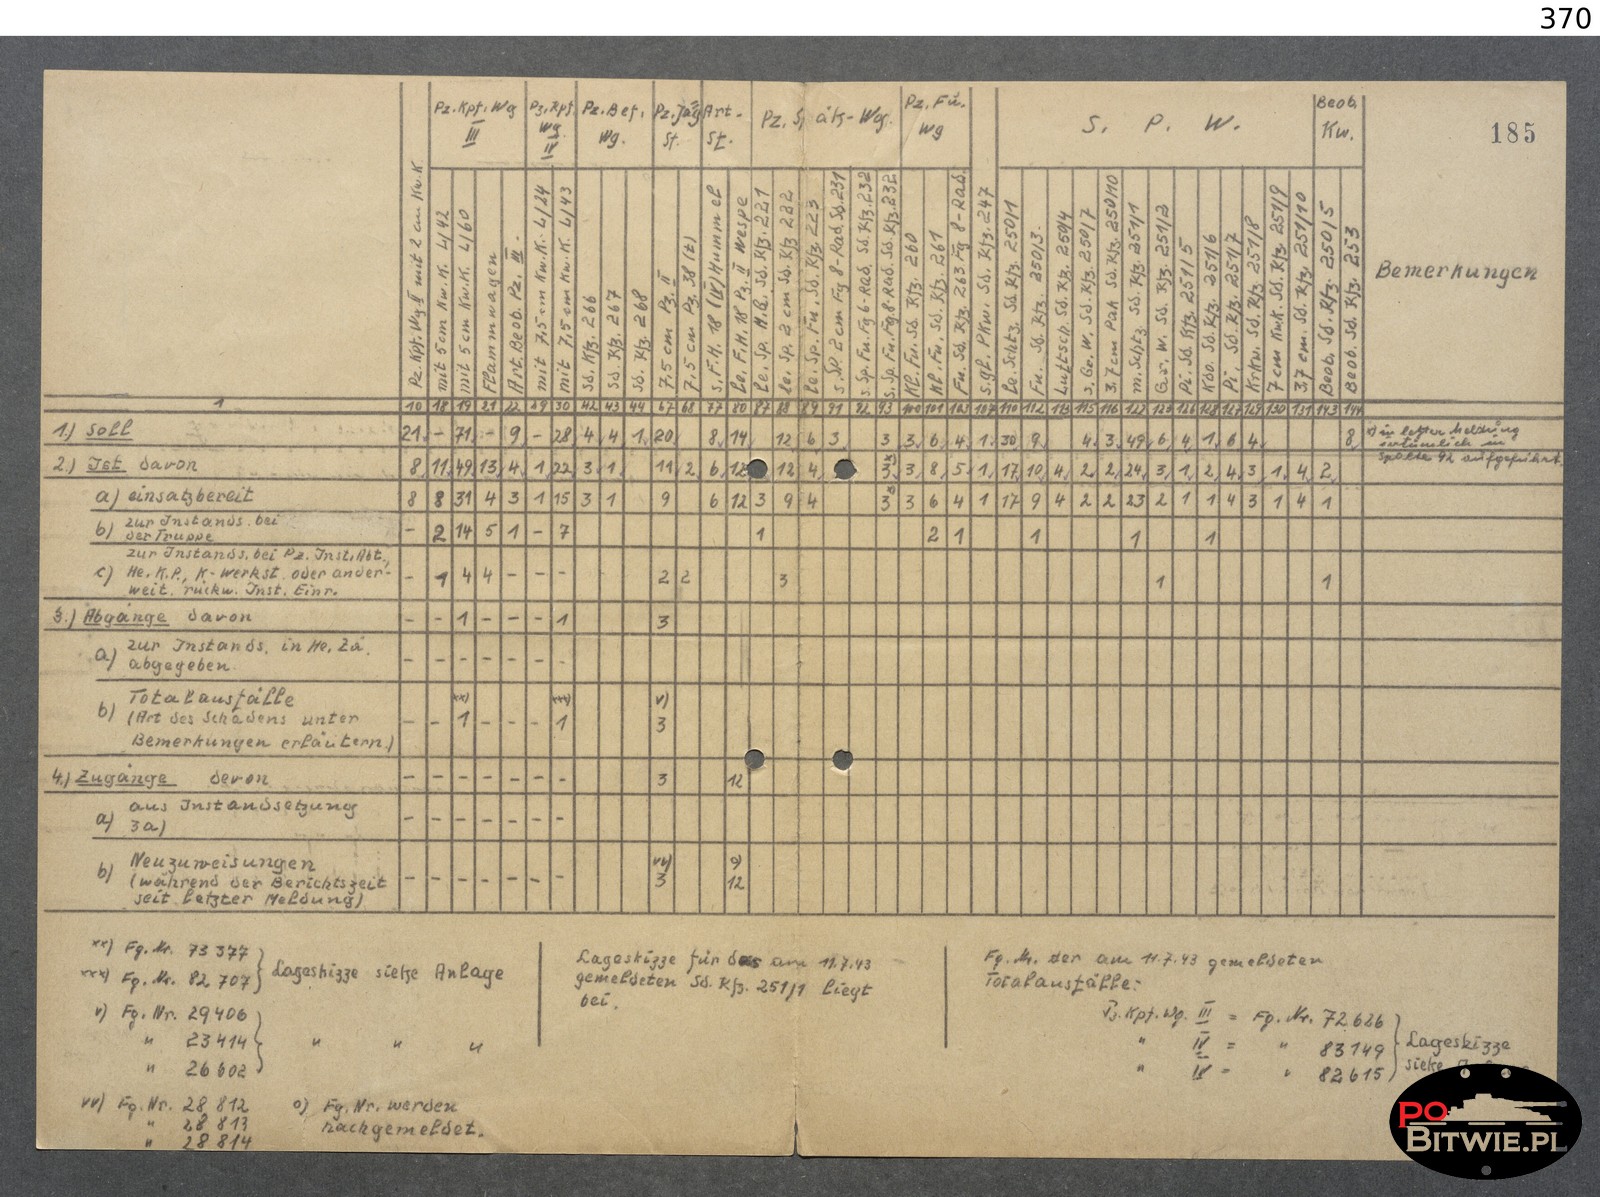 370
185
Pz. Kpf. Wg III
Pz. Kpf. Wg. IV
Pz. Bef. Wg.
Pz. Jäg St.
Art. - St.
Pz. Späk-Wg.
Pz. Fü. Wg
S. P. W.
Beob. Kw.
Bemerkungen
Pz. Kpf. Wg II mit 2 cm Kw.K
mit 5 cm Kw.K. L/42
mit 5 cm Kw.K. L/60
Flammwagen
Art. Beob. Pz. III.
mit 7,5 cm Kw.K. L/24
mit 7,5 cm Kw.K. L/43
Sd. Kfz. 266
Sd. Kfz. 267
Sd. Kfz. 268
7.5 cm Pz. II
7.5 cm Pz. 38 (t)
s. F.H. 18 (IV) Hummel
le. F.H. 18 Pz. II Wespe
le. Sp. M.G. Sd. Kfz. 221
le. Sp. 2 cm Sd. Kfz 222
le. Sp. Fu. Sd. Kfz. 223
s. Sp. 2 cm Fg 8-Rad. Sd. 231
s. Sp. Fu. Fg 6-Rad. Sd. Kfz. 232
s. Sp. Fu. Fg 8-Rad. Sd. Kfz. 232
Kl. Fu. Sd. Kfz. 260
Kl. Fu. Sd. Kfz. 261
Fu. Sd. Kfz. 263 Fg 8-Rad.
s. gl. PKw. Sd. Kfz. 247
le. Schtz. Sd. Kfz. 250/1
Fu. Sd. Kfz. 250/3.
Luftsch. Sd. Kfz. 250/4
s. Gr. W. Sd. Kfz. 250/7
3.7 cm Pak Sd. Kfz. 250/10
m. Schtz. Sd. Kfz. 251/1
Gr. W. Sd. Kfz. 251/2
Pi. Sd. Kfz. 251/5
Kdo. Sd. Kfz. 251/6
Pi. Sd. Kfz. 251/7
Kr. Kw. Sd. Kfz 251/8
7 cm Kw.K. Sd. Kfz 251/9
37 cm. Sd. Kfz. 251/10
Beob. Sd. Kfz. 250/5
Beob. Sd. Kfz. 253
1 10 18 19 21 22 29 30 42 43 44 67 68 77 80 87 88 89 91 92 93 100 101 103 107 110 112 113 115 116 122 123 126 128 127 129 130 131 143 144
1.) Soll 21. - 71. - 9 - 28 4 4 1. 20. 8. 14. 12 6 3 3 3. 6. 4. 1. 30 9. 4. 3. 49 6 4 1. 6 4. 8
x) in letzter Meldung
irrtümlich in
Spalte 92 aufgeführt.
2.) Ist davon 8. 11. 49. 13. 4. 1. 22. 3. 1. 11. 2. 6. 12 12 4. 3. 3 8. 5. 1. 17. 10. 4. 2. 2. 24. 3. 1. 2. 4. 3. 1. 4. 2.
a) einsatzbereit 8 8 31 4 3 1 15 3 1 9 6 12 3 9 4 3 3 6 4 1 17 9 4 2 2 23 2 1 1 4 3 1 4 1
b) zur Instands. bei
der Truppe - 2 14 5 1 - 7 1 2 1 1 1 1
zur Instands. bei Pz. Inst. Abt.,
c) He. K.P., K-Werkst. oder ander- - 1 4 4 - - - 2 2 3 1 1
weit. rückw. Inst. Einr.
3.) Abgänge davon - - 1 - - - 1 3
a) zur Instands. in He. Za.
abgegeben - - - - - - -
Totalausfälle xx) xxx) v)
b) (Art des Schadens unter - - 1 - - - 1 3
Bemerkungen erläutern.)
4.) Zugänge davon - - - - - - - 3 12
aus Instandsetzung
a) 3a) - - - - - - -
Neuzuweisungen vv) o)
b) (während der Berichtszeit - - - - - - - 3 12
seit letzter Meldung)
xx) Fg. Nr. 73 377
xxx) Fg. Nr. 82 707 } Lageskizze siehe Anlage
v) Fg. Nr. 29406
" 23414 } " " "
" 26602
vv) Fg. Nr. 28 812
" 28 813
" 28 814
o) Fg. Nr. werden
nachgemeldet.
Lageskizze für das am 11.7.43
gemeldeten Sd. Kfz. 251/1 liegt
bei.
Fg. Nr. der am 11.7.43 gemeldeten
Totalausfälle:
Pz. Kpf. Wg. III = Fg. Nr. 72 626
" IV = " 83 149 } Lageskizze
" IV = " 82 615 siehe
PO
BITWIE.PL